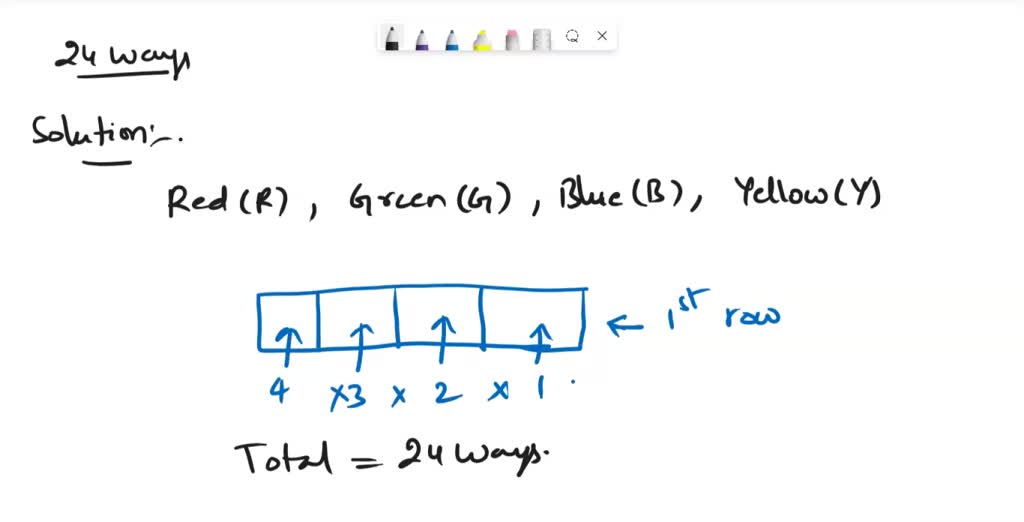 24 ways
Solution:-.
Red (R), Green (G), Blue (B), Yellow (Y)
← 1st row
4 x3 x 2 x 1 .
Total = 24 ways.